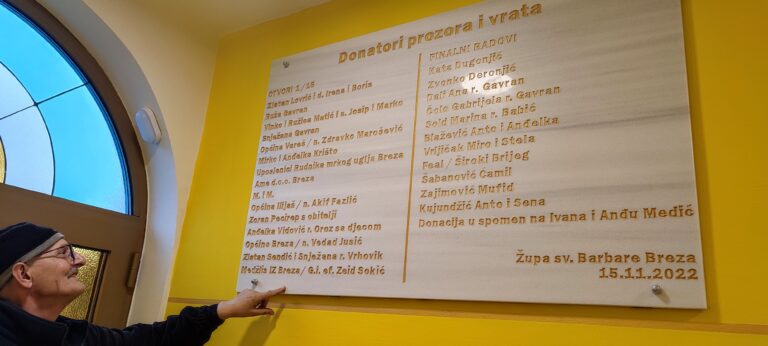 Donatori prozora i vrata
OTVORI 1/15
Zlatan Lovrić i d. Irena i Boris
Ruža Gavran
Vinko i Ružica Matić i s. Josip i Marko
Snježana Gavran
Općina Vareš / n. Zdravko Marošević
Mirko i Anđelka Krišto
Uposlenici Rudnika mrkog uglja Breza
Ama d.o.o. Breza
M. i M.
Općina Ilijaš / n. Akif Fazlić
Zoran Pecirep s obitelji
Anđelka Vidović r. Grez sa djecom
Općina Breza / n. Vedad Jusić
Zlatan Sendić i Snježana r. Vrhovik
Medžlis IZ Breza / G.i. ef. Zaid Sokić
FINALNI RADOVI
Kata Dugonjić
Zvonko Deronjić
Dall Ana r. Gavran
Čolo Gabrijela r. Gavran
Seid Marina r. Babić
Blažević Anto i Anđelka
Vrljičak Miro i Stela
Feal / Široki Brijeg
Šabanović Ćamil
Zajimović Mufid
Kujundžić Anto i Sena
Donacija u spomen na Ivana i Anđu Medić
Župa sv. Barbare Breza
15.11.2022